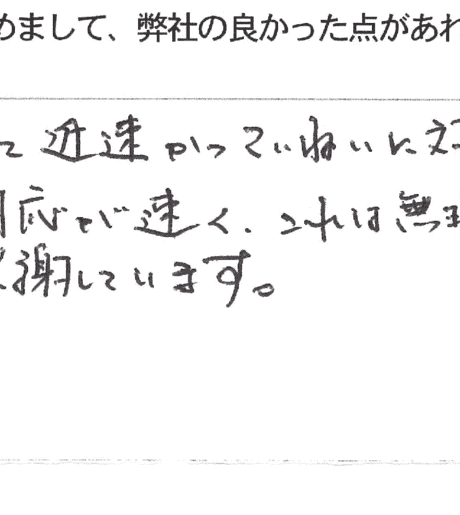 めまして、弊社の良かった点があれ
て近速かつていねいに対
応が速く、これは無理
謝しています。